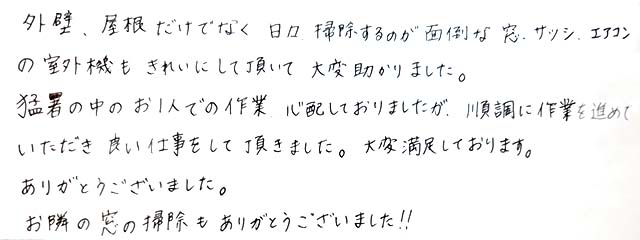 外壁、屋根だけでなく 日口 掃除するのが面倒な 窓、サッシ、エアコン
の室外機も きれいにして頂いて 大変助かりました。
猛暑の中の お1人での作業 心配しておりましたが、順調に作業を進めて
いただき 良い仕事をして頂きました。大変満足しております。
ありがとうございました。
お隣の窓の掃除も ありがとうございました!!